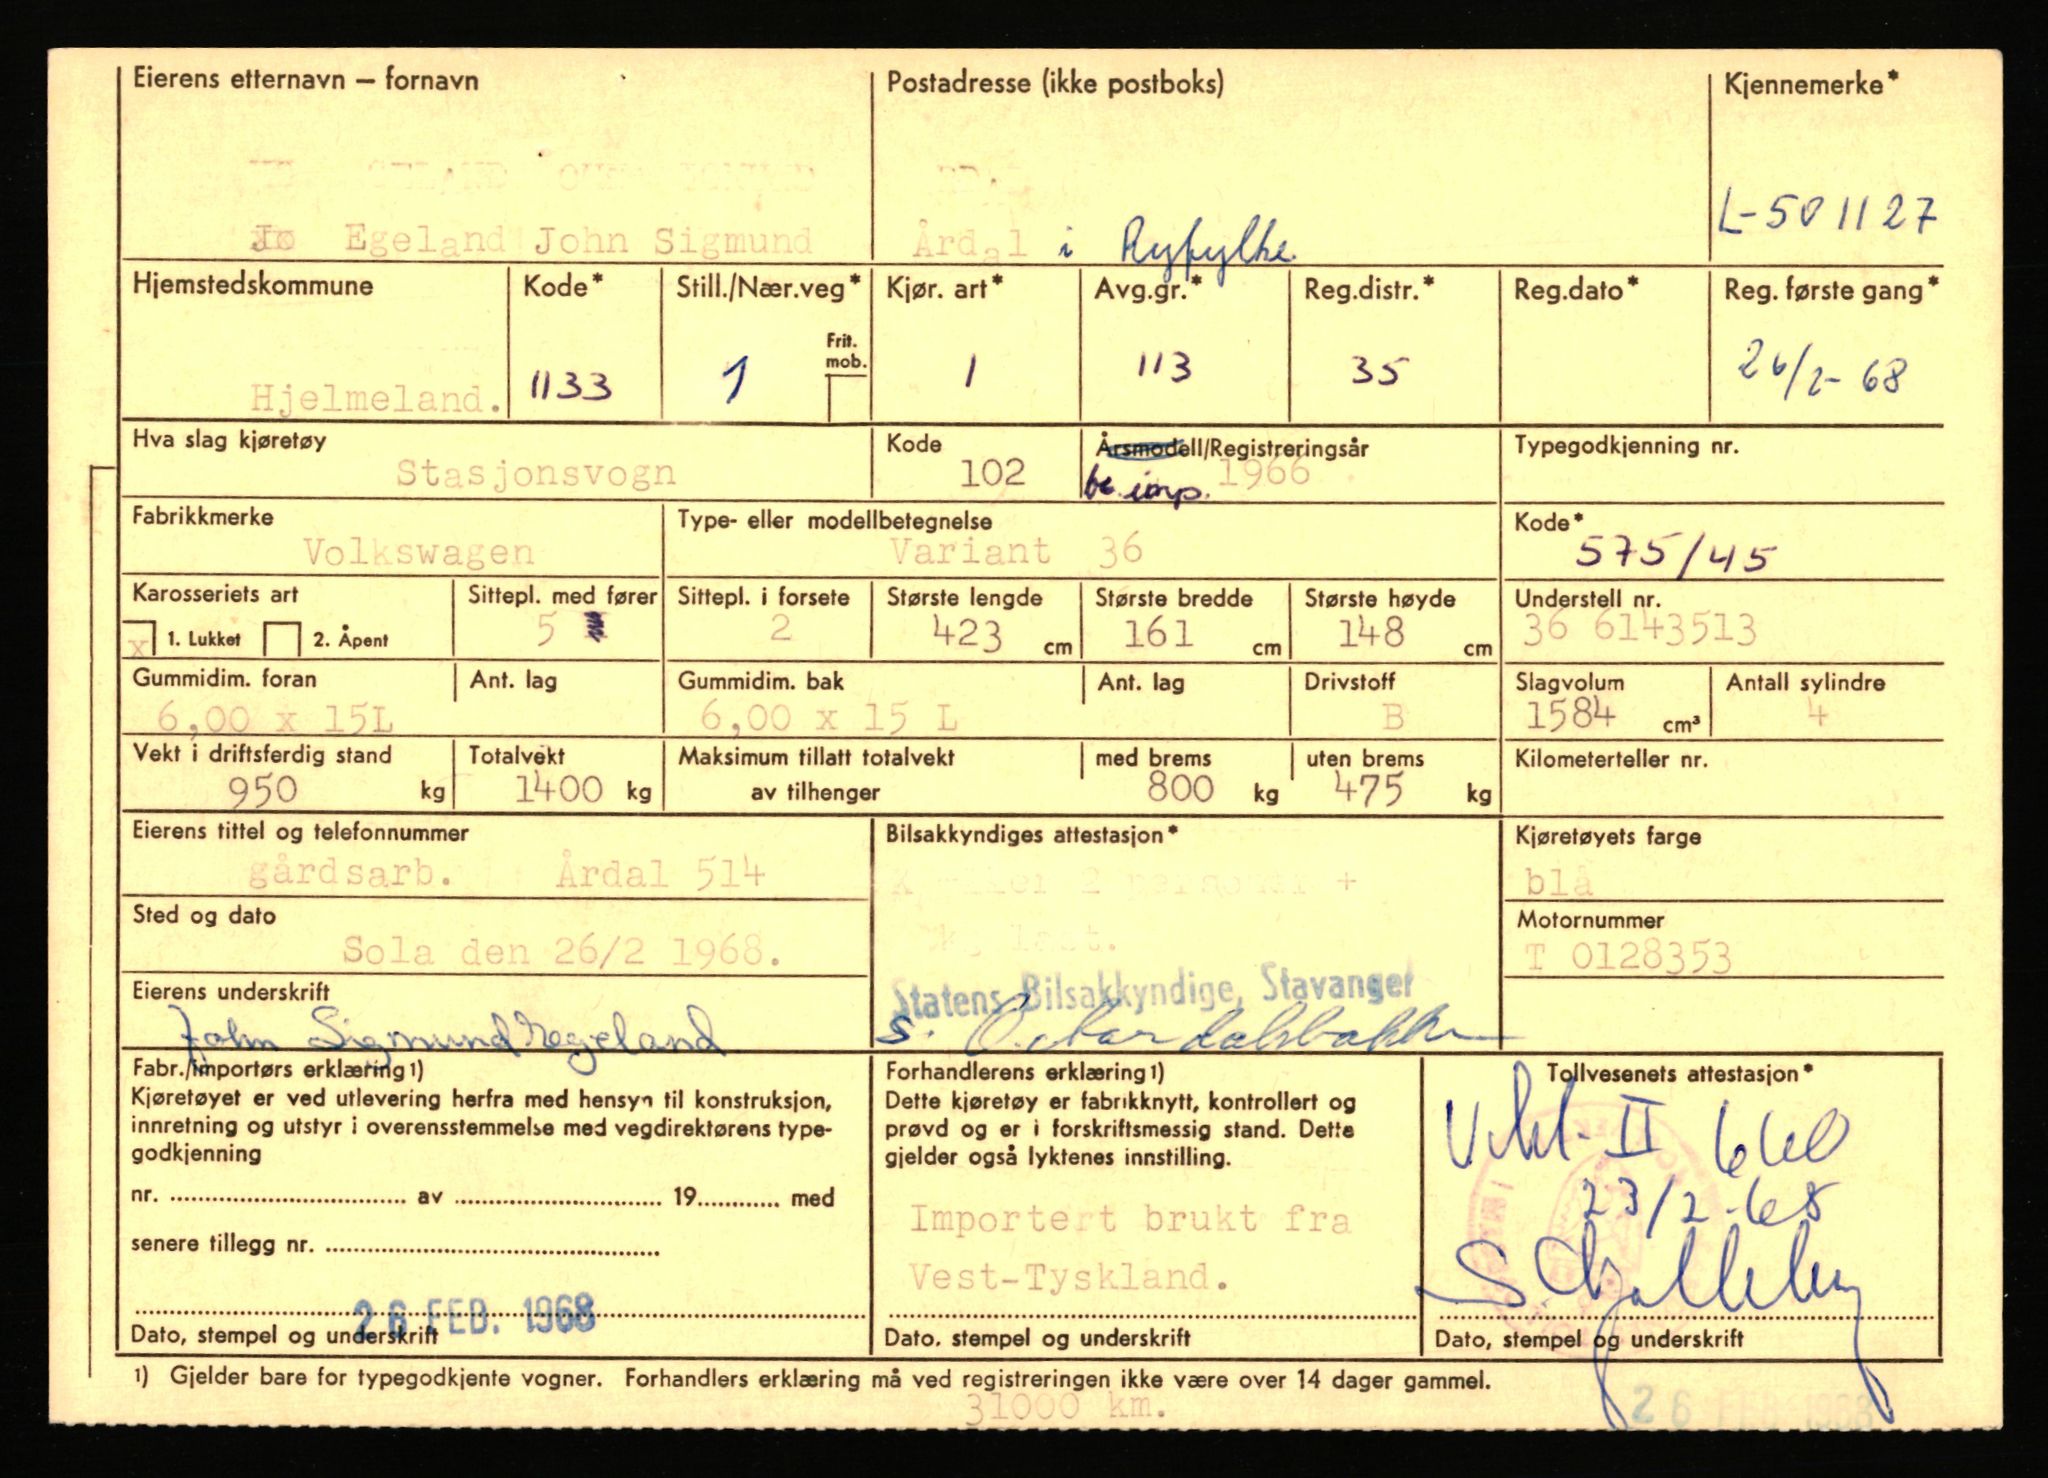 Eierens etternavn — fornavn
Postadresse (ikke postboks)
Kjennemerke*
Egeland John Sigmund
Årdal i Ryfylke.
L-501127
Hjemstedskommune
Kode*
Still./Nær.veg*
Frit. mob.
Kjør. art*
Avg.gr.*
Reg.distr.*
Reg.dato*
Reg. første gang*
Hjelmeland.
1133
1
1
113
35
26/2-68
Hva slag kjøretøy
Kode
Årsmodell/Registreringsår
Typegodkjenning nr.
Stasjonsvogn
102
1966
Fabrikkmerke
Type- eller modellbetegnelse
Kode*
Volkswagen
Variant 36
575/45
Karosseriets art
Sittepl. med fører
Sittepl. i forsete
Største lengde
Største bredde
Største høyde
Understell nr.
x 1. Lukket 2. Åpent
5
2
423 cm
161 cm
148 cm
36 6143513
Gummidim. foran
Ant. lag
Gummidim. bak
Ant. lag
Drivstoff
Slagvolum
Antall sylindre
6,00 x 15L
6,00 x 15 L
B
1584 cm³
4
Vekt i driftsferdig stand
Totalvekt
Maksimum tillatt totalvekt
av tilhenger
med brems
uten brems
Kilometerteller nr.
950 kg
1400 kg
800 kg
475 kg
Eierens tittel og telefonnummer
Bilsakkyndiges attestasjon*
Kjøretøyets farge
gårdsarb. Årdal 514
blå
Sted og dato
Motornummer
Sola den 26/2 1968.
T 0128353
Eierens underskrift
Statens Bilsakkyndige, Stavanger
John Sigmund Egeland
Fabr./importørs erklæring 1)
Kjøretøyet er ved utlevering herfra med hensyn til konstruksjon,
innretning og utstyr i overensstemmelse med vegdirektørens type-
godkjenning
nr. .......... av .......... 19.......... med
senere tillegg nr. ..........
26 FEB. 1968
Dato, stempel og underskrift
Forhandlerens erklæring 1)
Dette kjøretøy er fabrikknytt, kontrollert og
prøvd og er i forskriftsmessig stand. Dette
gjelder også lyktenes innstilling.
Importert brukt fra
Vest-Tyskland.
Dato. stempel og underskrift
Tollvesenets attestasjon*
II 660
23/2-68
Dato, stempel og underskrift
1) Gjelder bare for typegodkjente vogner. Forhandlers erklæring må ved registreringen ikke være over 14 dager gammel.
31000 km.
26 FEB 1968